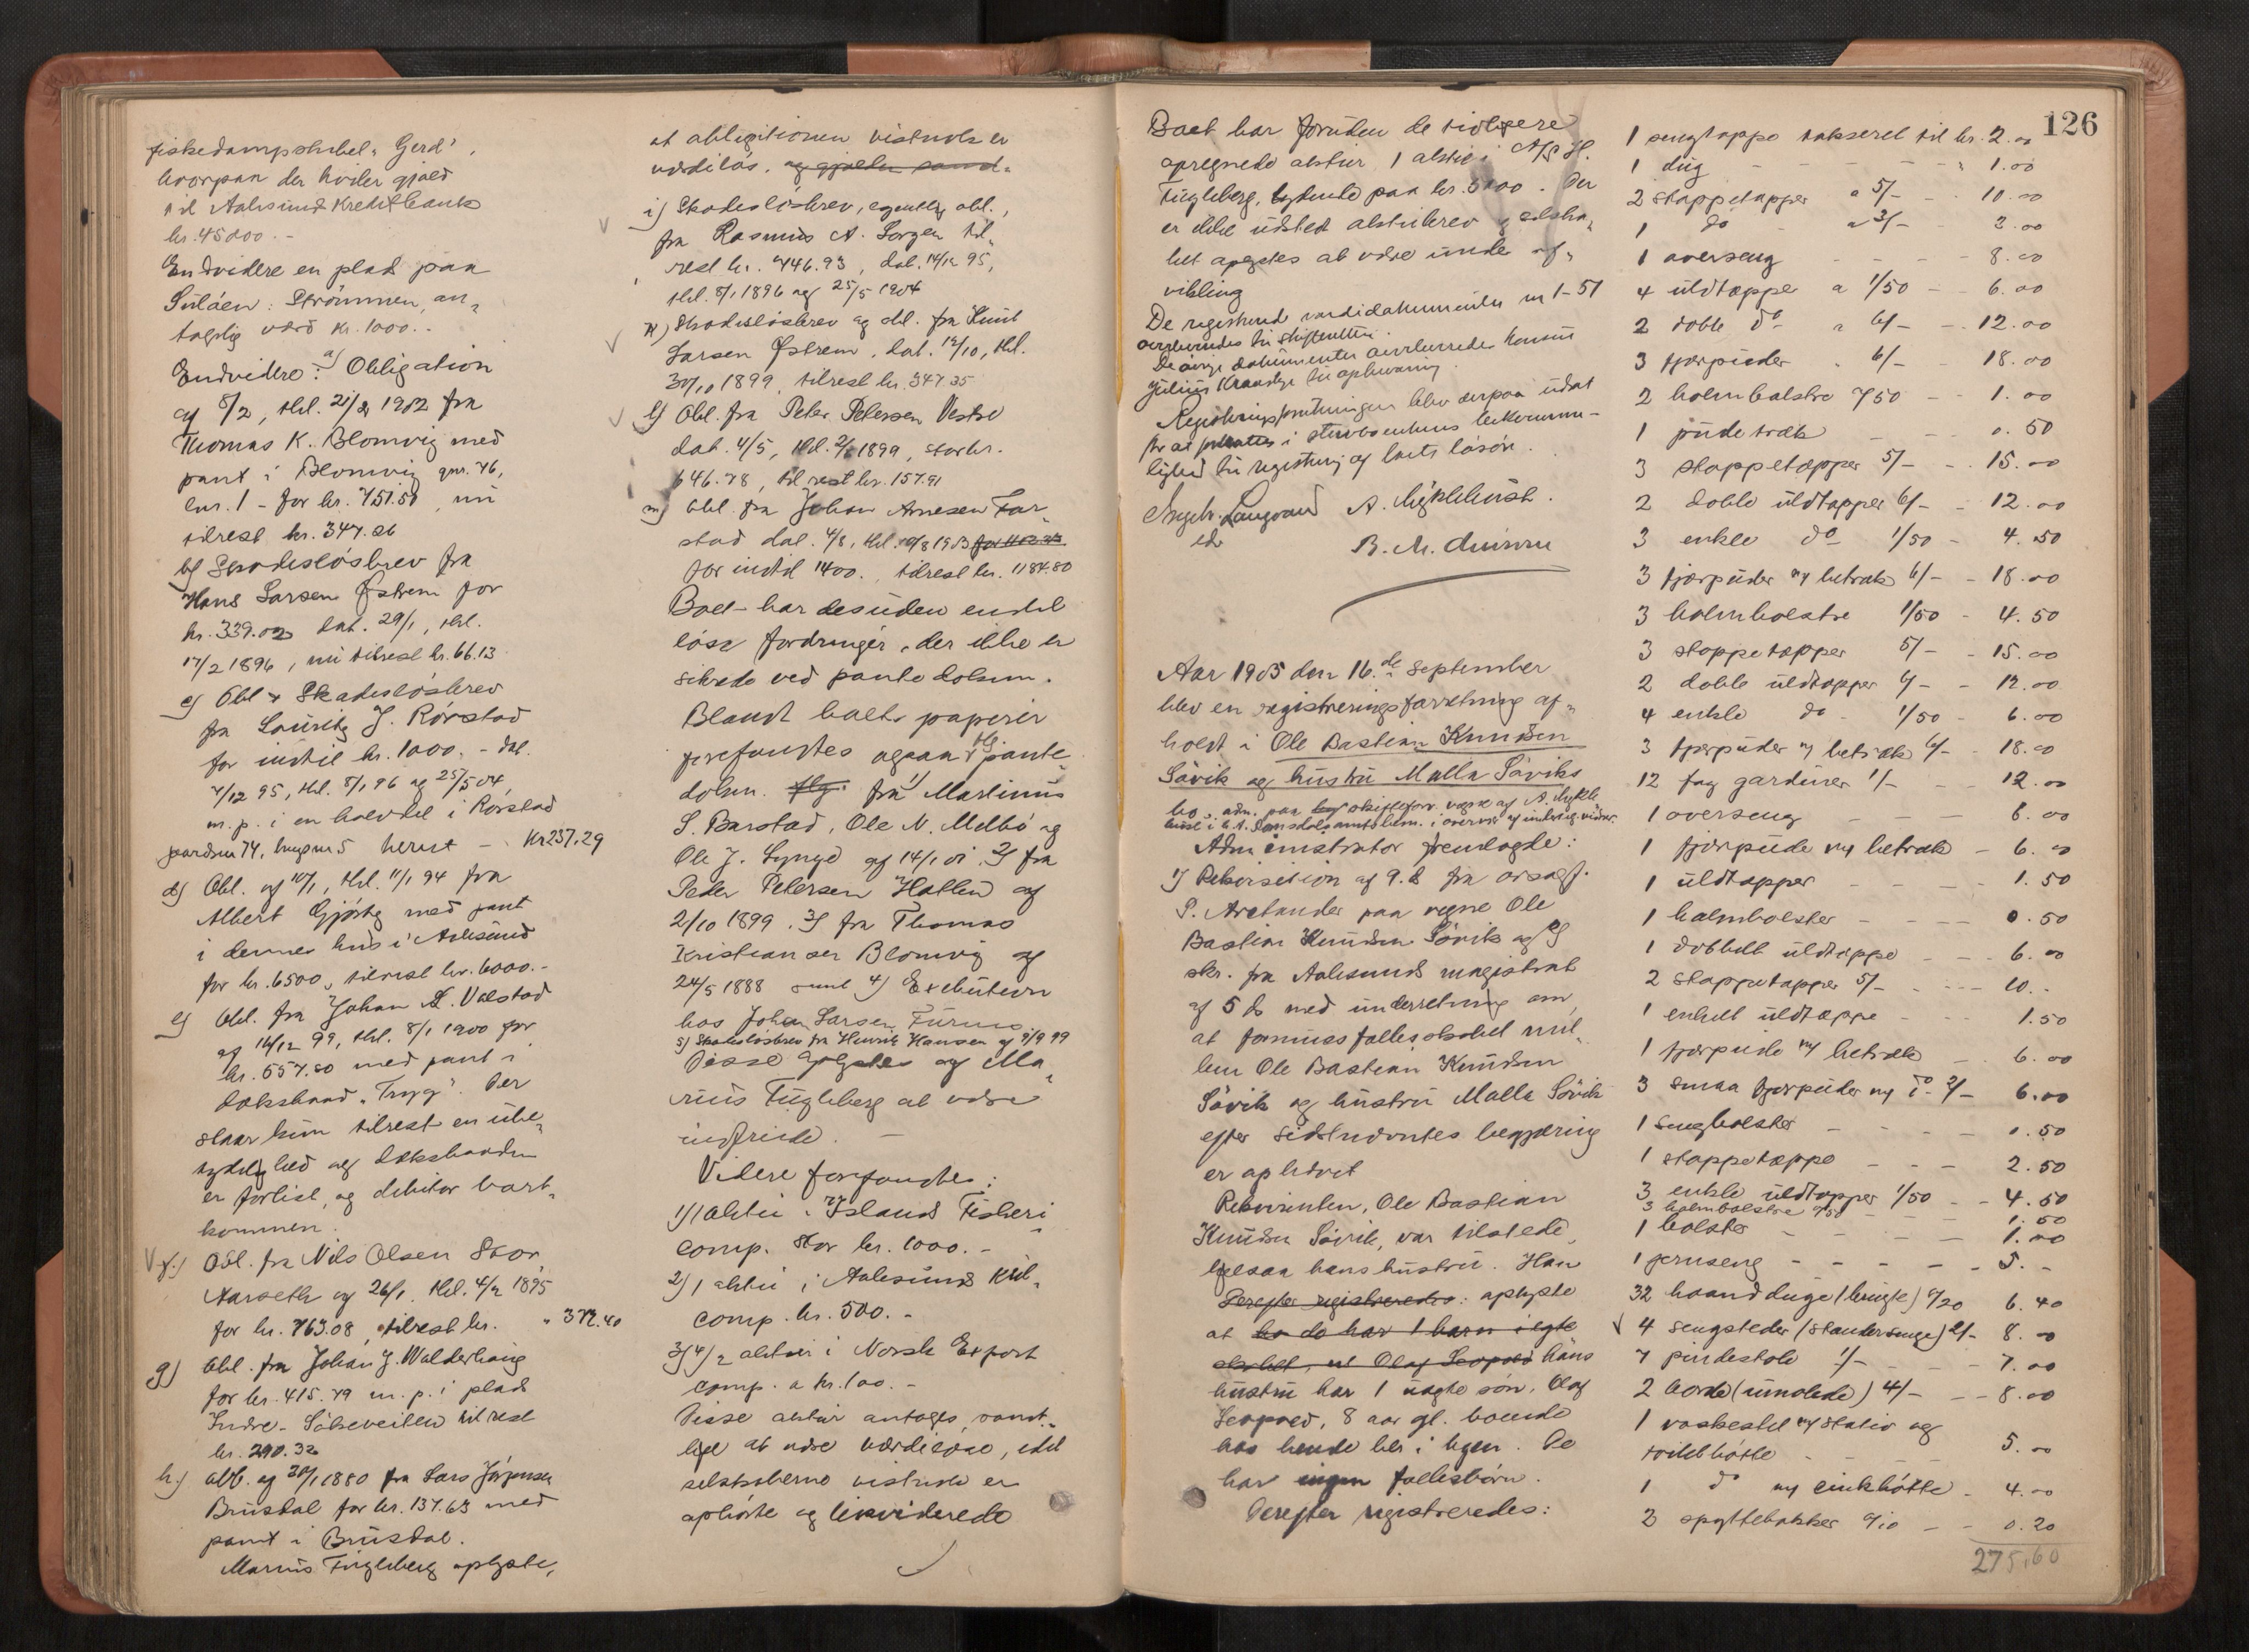 fiskedampskibet „Gerd",
hvorpaa der hviler gjæld
til Aalesund Kreditbank
kr. 45000.-
Endvidere en plads paa
Suløen: Strømmen, an-
tagelig værd kr. 1000.-
Endvidere: a) Obligation
af 8/2, thl. 21/2 1902 fra
Thomas K. Blomvig med
pant i Blomvig gnr. 76,
bnr. 1 - for kr. 751.50, nu
tilrest kr. 347.26
b) Skadesløsbrev fra
Hans Larsen Østrem for
kr. 339.02 dat. 29/1, thl.
17/2 1896, nu tilrest kr. 66.13
c) Obl & Skadesløsbrev
fra Lauritz J. Rørstad
for indtil kr. 1000.- dat.
7/12 95, thl. 8/1 96 og 25/5 04,
m. p. i en halvdel i Rørstad
gardsnr 74, brugsnr 5 herut - Kr 237.29
d) Obl. af 10/1, thl. 11/1 94 fra
Albert Gjørtz med pant
i dennes hus i Aalesund
for kr. 6500, tilrest kr. 6000.-
e) Obl. fra Johan A. Valstad
af 14/12 99, thl. 8/1 1900 for
kr. 657.80 med pant i
dæksbaad „Tryg". Der
staar kun tilrest en ube-
tydelighed og dæksbaaden
er forlist, og debitor bort-
kommen.
f.) Obl. fra Nils Olsen Stor
Aarseth af 26/1, thl. 4/2 1895
for kr. 763.08, tilrest kr. " 372.40
g) Obl. fra Johan J. Walderhaug
for kr. 415.79 m. p. i plads
Indre-Sákeveiten tilrest
kr. 290.32
h.) Obl. af 30/1 1880 fra Lars Jørgensen
Brusdal for kr. 137.63 med
pant i Brusdal.
Marius Fugleberg oplyste,
at obligationen vistnok er
værdiløs. og gjælder samt-
i) Skadesløsbrev, egentlig obl.,
fra Rasmus A. Sorgen til-
rest kr. 446.93, dat. 14/12 95,
thl. 8/1 1896 og 25/5 1904
k) Skadesløsbrev og obl. fra Knut
Larsen Østrem, dat. 12/10, thl.
30/10 1899, tilrest kr. 347.35
l) Obl. fra Peter Petersen Vestre
dat. 4/5, thl. 2/6 1899, stor kr.
646.78, tilrest kr. 157.91
m) Obl. fra Johan Arnesen Far-
stad dat. 4/8, thl. 10/8 1903
for indtil 1400., tilrest kr. 1184.80
Boet har desuden endel
løse fordringer, der ikke er
sikrede ved pantedokum.
Blandt boets papirer
forefandtes ogsaa flg pante-
dokum. flg. fra 1) Martinus
S. Barstad, Ole N. Melbø og
Ole J. Lynge af 14/1 01. 2) fra
Peder Petersen Hatlen af
2/10 1899. 3) fra Thomas
Kristiansen Blomvig af
24/5 1888 samt 4) Exekution
hos Johan Larsen Furnes
5) Skadesløsbrev fra Henrik Hansen af 9/9 99
Disse oplystes af Ma-
rius Fugleberg at være
indfriede. -
Videre forefandtes:
1) 1 aktie i Islands Fiskeri-
comp. stor kr. 1000.-
2) 1 aktie i Aalesunds Kul-
comp. kr. 500.-
3) 4/2 aktier i Norsk Export
comp. a kr. 100.-
Disse aktier antoges samt-
lige at være værdiløse, idet
selskaberne vistnok er
ophørte og likviderede
126
Boet har foruden de tidligere
opregnede aktier, 1 aktie i A/S H.
Fugleberg, lydende paa kr. 5000. Der
er ikke udstedt aktiebrev og selska-
bet opgives at være under af-
vikling
De registrerede værdidokumenter nr 1-51
overleveredes til skifteretten.
De øvrige dokumenter overleveredes konsul
Julius Kraadtje til opbevaring.
Registreringsforretningen blev derpaa udsat
for at fortsættes i sterboenkens bekvemme-
lighed til registrering af boets løsøre.
Ingebr. Langvand A. Myklebust.
ed B. M. Aurenu
Aar 1905 den 16.de september
blev en registreringsforretning af-
holdt i Ole Bastian Knudsen
Søvik og hustru Malla Søviks
bo - adm. paa skifteforv. vegne af A. Mykle-
bust i h.t. Romsdals amtsbem. i overvær af undertegn. vidner.
Administrator fremlagde:
1) Rekvisition af 9. ds fra orsagf.
P. Arctander paa vegne Ole
Bastian Knudsen Søvik og 2)
skr. fra Aalesunds magistrat
af 5 ds med underretning om,
at formuesfællesskabet mel-
lem Ole Bastian Knudsen
Søvik og hustru Malla Søvik
efter sidstnævntes begjæring
er ophævet
Rekvirenten, Ole Bastian
Knudsen Søvik, var tilstede,
ligesaa hans hustru. Han
Derefter registreredes: oplyste
at bo do har 1 barn i egte
skabet, nl Olaf Leopold hans
hustru har 1 uægte søn, Olaf
Leopold, 8 aar gl. boende
hos hende her i byen. De
har ingen fællesbørn.
Derefter registreredes:
1 sengtæppe takseret til kr. 2.00
1 dug - - - - " 1.00
2 stoppetæpper a 5/- - 10.00
1 do - a 2/- - 2.00
1 overseng - - - - 8.00
4 uldtæpper a 1/50 - - 6.00
2 doble do a 6/- - 12.00
3 fjærpuder " 6/- 18.00
2 halmbolstre 0/50 - - 1.00
1 pudetræk - - - 0.50
3 stoppetæpper 5/- - - 15.00
2 doble uldtæpper 6/- - 12.00
3 enkle do 1/50 - 4.50
3 fjærpuder m/ betræk 6/- - 18.00
3 halmbolstre 1/50 - 4.50
3 stoppetæpper 5/- - 15.00
2 doble uldtæpper 6/- - 12.00
4 enkle do - 1/50 - 6.00
3 fjærpuder m/ betræk 6/- - 18.00
12 fag gardiner 1/- - 12.00
1 overseng - - - 8.00
1 fjærpude m/ betræk - 6.00
1 uldtæpper - - - - 1.50
1 halmbolster - - - - 0.50
1 dobbelt uldtæppe - - - 6.00
2 stoppetæpper 5/- - - - 10.-
1 enkelt uldtæppe - - - 1.50
1 fjærpude m/ betræk - - 6.00
3 smaa fjærpuder m/ do 2/- 6.00
1 sengbolster - - - - 0.50
1 stoppetæppe - - - 2.50
3 enkle uldtæpper 1/50 - - 4.50
3 halmbolstre 0/50 - - 1.50
1 bolster - - - - 1.00
1 jernseng - - - - - 5.-
32 haandduge (brugte) 0/20 6.40
4 sengsteder (standersenge) 2/- 8.00
7 pindestole 1/- - - 7.00
2 borde (umalede) 4/- - - 8.00
1 vaskestel m/ stativ og
toiletbøtte - - - 5.00
1 do m/ zinkbøtte - 4.00
2 spyttebakker 0/10 - - 0.20
275,60